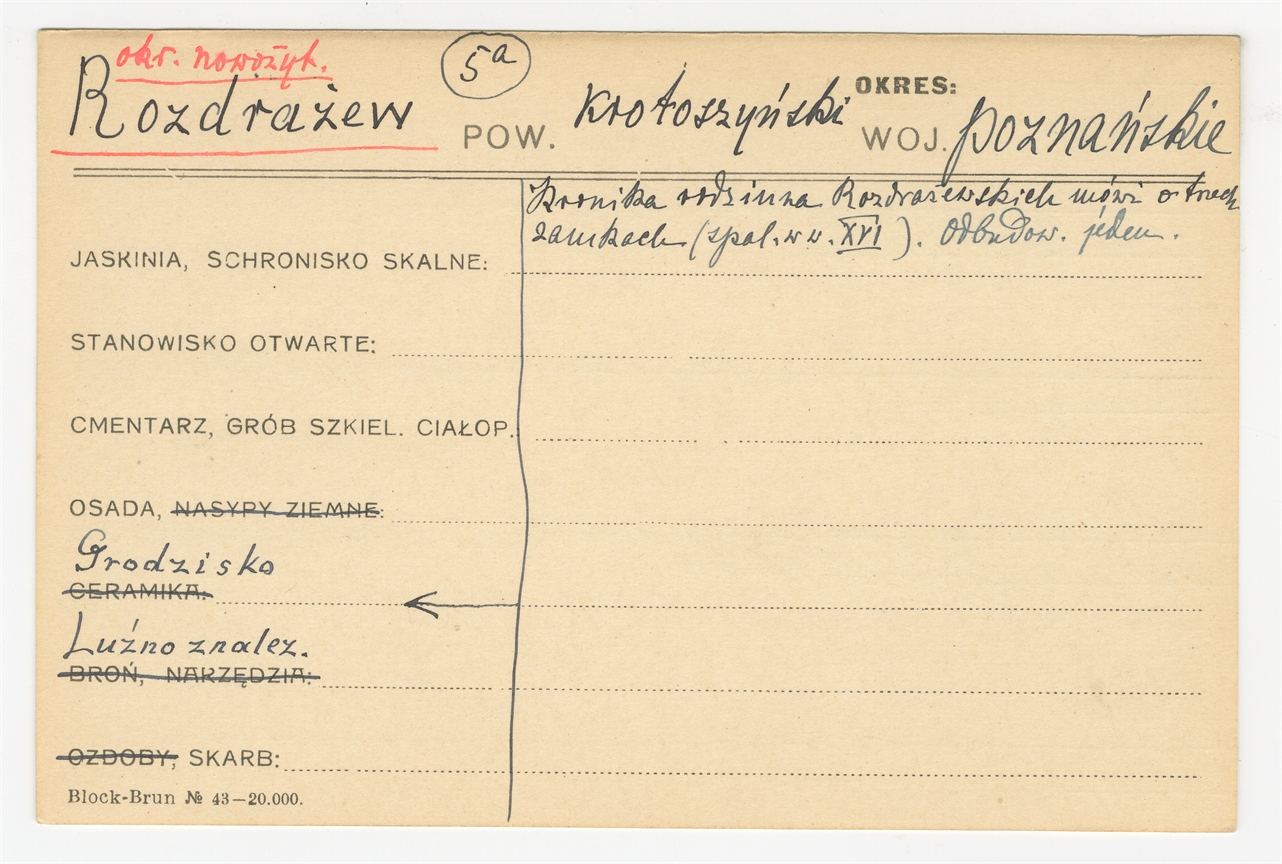 okr. nowożyt.
Rozdrażew 5a POW. Krotoszyński OKRES: WOJ. poznańskie
Kronika rodzinna Rozdrażewskich mówi o trzech
zamkach (spal. w w. XVI). Odbudow. jeden.
JASKINIA, SCHRONISKO SKALNE:
STANOWISKO OTWARTE:
CMENTARZ, GRÓB SZKIEL. CIAŁOP.
OSADA, NASYPY ZIEMNE:
Grodzisko
CERAMIKA:
Luźno znalez.
BROŃ, NARZĘDZIA:
OZDOBY, SKARB:
Block-Brun № 43—20.000.